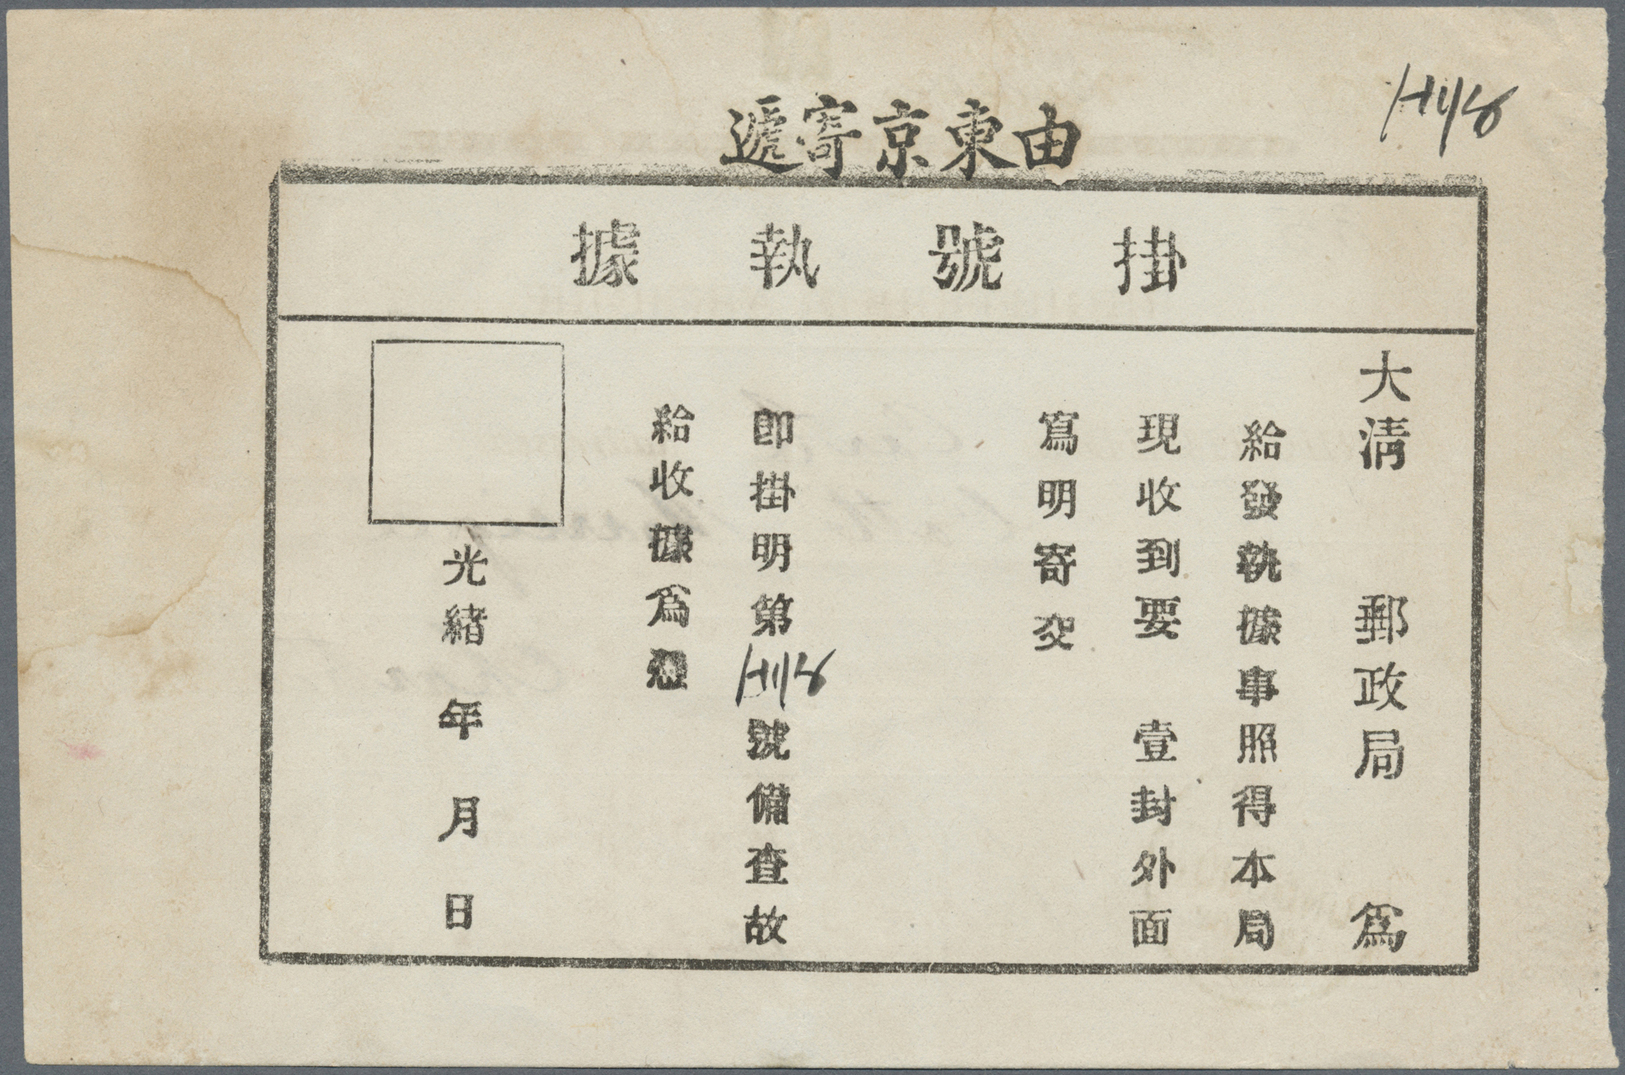 由東京寄遞
掛號執據
大清 郵政局 爲
給發執據事照得本局
現收到要 壹封外面
寫明寄交
即掛明第 號備查故
給收據爲憑
光緒 年 月 日